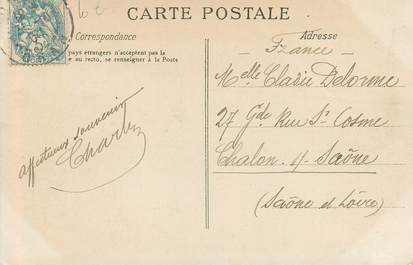 CARTE POSTALE
Correspondance
pays étrangers n'acceptent pas la
au recto, se renseigner à la Poste
Affectueux souvenir
Charly
Adresse
France
Melle Clasie Delorme
27 Gde Rue St Cosme
Chalon s/ Saône
(Saône et Loire)